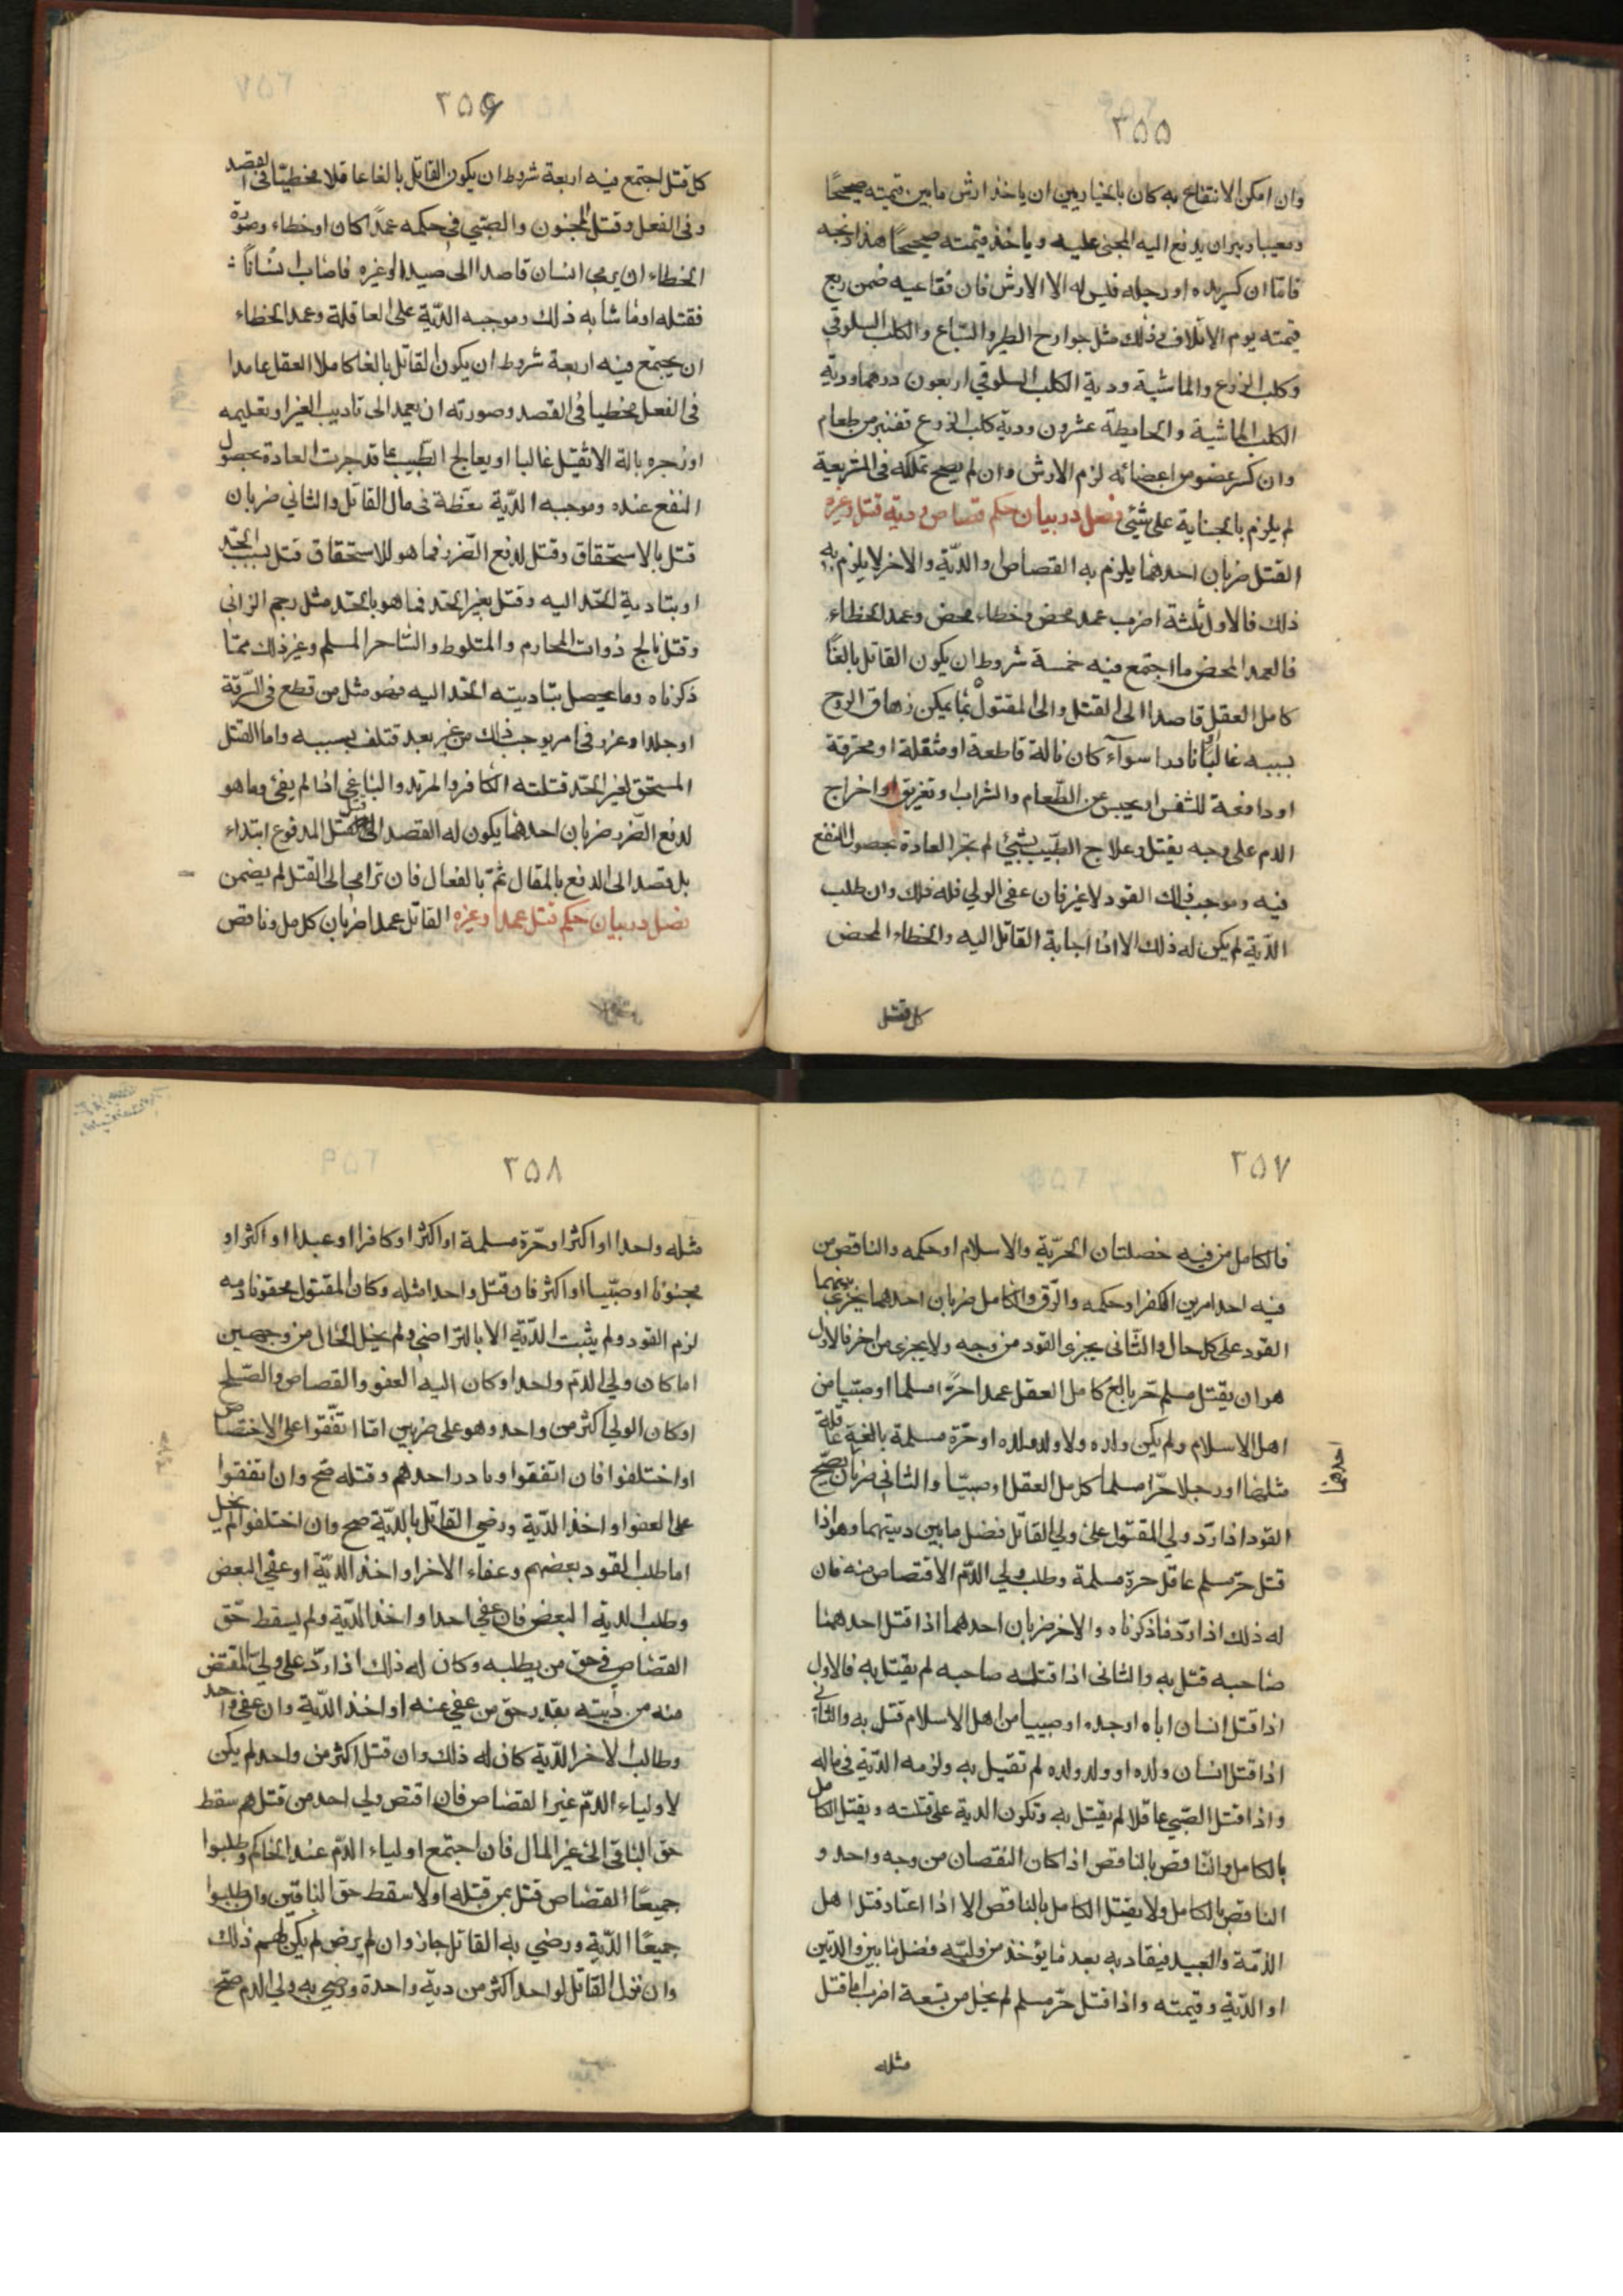 ٣٥٥
وان امكن الانتفاع به كان بالخيار بين ان ياخذ ارش ما بين قيمته صحيحًا
ومعيبا وبين ان يدفع اليه المجنى عليه وياخذ قيمته صحيحًا هذا اذبحه
فاما ان كسر يده او رجله فليس له الا الارش فان فقا عينه ضمن ربع
قيمته يوم الاتلاف وذلك مثل جوارح الطير والسباع والكلب السلوقي
وكلب الزرع والماشية ودية الكلب السلوقي اربعون درهما ودية
الكلب الماشية والحايطة عشرون ودية كلب الزرع قفيز من طعام
وان كسر عضو من اعضائه لزم الارش وان لم يصح تملكه فى الشريعة
لم يلزم بالجناية على شئى فصل در بيان حكم قصاص و دية قتل وغيره
القتل ضربان احدهما يلزم به القصاص او الدّية والاخر لا يلزم به
ذلك فالاول ثلثة اضرب عمد محض وخطاء محض وعمد الخطاء
فالعمد المحض ما اجتمع فيه خمسة شروط ان يكون القاتل بالغًا
كامل العقل قاصدا الى القتل والى المقتول بما يمكن زهاق الروح
بسببه غالبًا او نادرا سوآء كان بالة قاطعة او مثقلة او محرقة
او دافعة للنفس او بحبس عن الطّعام والشراب وتغريق او اخراج
الدم على وجه يقتل وعلاج الطّبيب بشيئ لم تجر العادة بحصول النفع
فيه وموجب ذلك القود لا غير فان عفى الولي فله ذلك وان طلب
الدّية لم يكن له ذلك الا اذا اجابة القاتل اليه والخطاء المحض
كل قتل
٣٥٦
كل قتل اجتمع فيه اربعة شروط ان يكون القاتل بالغا عاقلا مخطيّا فى القصد
وفى الفعل وقتل المجنون والصّبي فى حكمه عمدًا كان او خطاء وصورة
الخطاء ان يرمى انسان قاصدا الى صيد او غيره فاصاب انسانًا
فقتله او ما شابه ذلك وموجبه الدّية على العاقلة وعمد الخطاء
ان يجتمع فيه اربعة شروط ان يكون القاتل بالغا كاملا العقل عامدا
فى الفعل مخطيا فى القصد وصورته ان يعمد الى تاديب الغير او تعليمه
او زجره بالة لا تقتل غالبا او يعالج الطّبيب بما قد جرت العادة بحصول
النفع عنده وموجبه الدّية مغلظة فى مال القاتل والثاني ضربان
قتل بالاستحقاق وقتل لدفع الضّرر فما هو للاستحقاق قتل بسبب الحدّ
او بتادية الحدّ اليه وقتل بغير الحدّ فما هو بالحدّ مثل رجم الزانى
وقتل ناكح ذوات المحارم والمتلوط والسّاحر المسلم وغير ذلك ممّا
ذكرناه وما يحصل بتاديته الحدّ اليه فهو مثل من قطع فى السّرقة
او جلد او عزر فى امر يوجب ذلك من غير بعد فتلف بسببه واما القتل
المستحق لغير الحدّ قتلته الكافر والمرتد والباغى اذا لم يفئ وما هو
لدفع الضّرر ضربان احدهما يكون له القصد الى قتل المدفوع ابتداء
بل قصد الى الدفع بالمقال ثمّ بالفعال فان ترامى الى القتل لم يضمن
فصل در بيان حكم قتل عمدا وغيره القاتل عمدا ضربان كامل وناقص
٣٥٧
فالكامل من فيه خصلتان الحريّة والاسلام او حكمه والناقص من
فيه احد امرين الكفر او حكمه والرّق والكامل ضربان احدهما يجزى بينهما
القود على كل حال والثّانى يجزى القود من وجه ولا يجزى من اخر فالاول
هو ان يقتل مسلم حر بالغ كامل العقل عمدا حرًا مسلما او صبّيا من
اهل الاسلام ولم يكن ولده ولا ولد ولده او حرّة مسلمة بالغة عاقلة
احدهما
مثلها او رجلا حرّا مسلما كامل العقل او صبيّا والثانى ضربان يصّح
القود اذا ردّ ولي المقتول على ولي القاتل فضل ما بين ديتهما وهو اذا
قتل حرّ مسلم عاقل حرة مسلمة وطلب ولي الدّم الاقتصاص منه فان
له ذلك اذا ردّ ما ذكرناه والاخر ضربان احدهما اذا قتل احدهما
صاحبه قتل به والثانى اذا قتله صاحبه لم يقتل به فالاول
اذا قتل انسان اباه او جده او صبيا من اهل الاسلام قتل به والثانى
اذا قتل انسان ولده او ولد ولده لم تقيل به ولزمه الدّية فى ماله
واذا قتل الصّبي عاقلا لم يقتل به وتكون الدية على قتلته ويقتل الكامل
بالكامل والنّاقص بالناقص اذا كان النقصان من وجه واحد و
الناقص بالكامل ولا يقتل الكامل بالناقص الا اذا اعتاد قتل اهل
الذّمّة والعبيد فيقاد به بعد ما يؤخذ من وليّه فضل ما بين والدتين
او الدّية وقيمته واذا قتل حرّ مسلم لم يخل من تسعة اضرب اما قتل
مثله
٣٥٨
مثله واحدا او اكثر او حرّة مسلمة او اكثر او كافرا او عبدا او اكثر او
مجنونا او صبّيا او اكثر فان قتل واحدا مثله وكان المقتول محقونا دمه
لزم القود ولم يثبت الدّية الا بالتراضى ولم يخل الحال من وجهين
اما كان ولي الدّم واحدا وكان اليه العفو والقصاص والصّلح
او كان الولي اكثر من واحد وهو على ضربين امّا اتّفقوا على الاختصاص
او اختلفوا فان اتفقوا وبادر احدهم وقتله صّح وان اتفقوا
على العفو او اخذ الدّية ورضى القاتل بالدّية صح وان اختلفوا لم يخل
اما طلب القود بعضهم وعفاء الاخر او اخذ الديّة او عفى البعض
وطلب الدية البعض فان عفى احد او اخذ الدّية ولم يسقط حّق
القصاص فى حق من يطلبه وكان له ذلك اذا ردّ على ولي المقتض
منه من ديته بقدر حق من عفى عنه او اخذ الدّية وان عفى واحد
وطالب الاخر الدّية كان له ذلك وان قتل اكثر من واحد لم يكن
لاولياء الدّم غير القصاص فان اقتص ولي احد من قتلهم سقط
حق الباقى الى غير المال فان اجتمع اولياء الدّم عند الحاكم وطلبوا
جميعًا القصاص قتل بمن قتله اولا سقط حق الباقين وان طلبوا
جميعًا الدّية ورضي به القاتل جاز وان لم يرض لم يكن لهم ذلك
وان نزل القاتل لواحد اكثر من ديّة واحدة ورضى به ولي الدم صّح